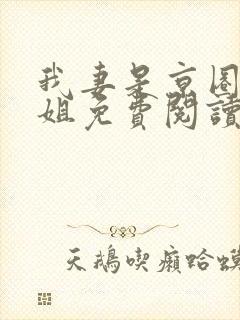 我妻是京圈
姐免費閱讀
天鵝喫癩蛤蟆